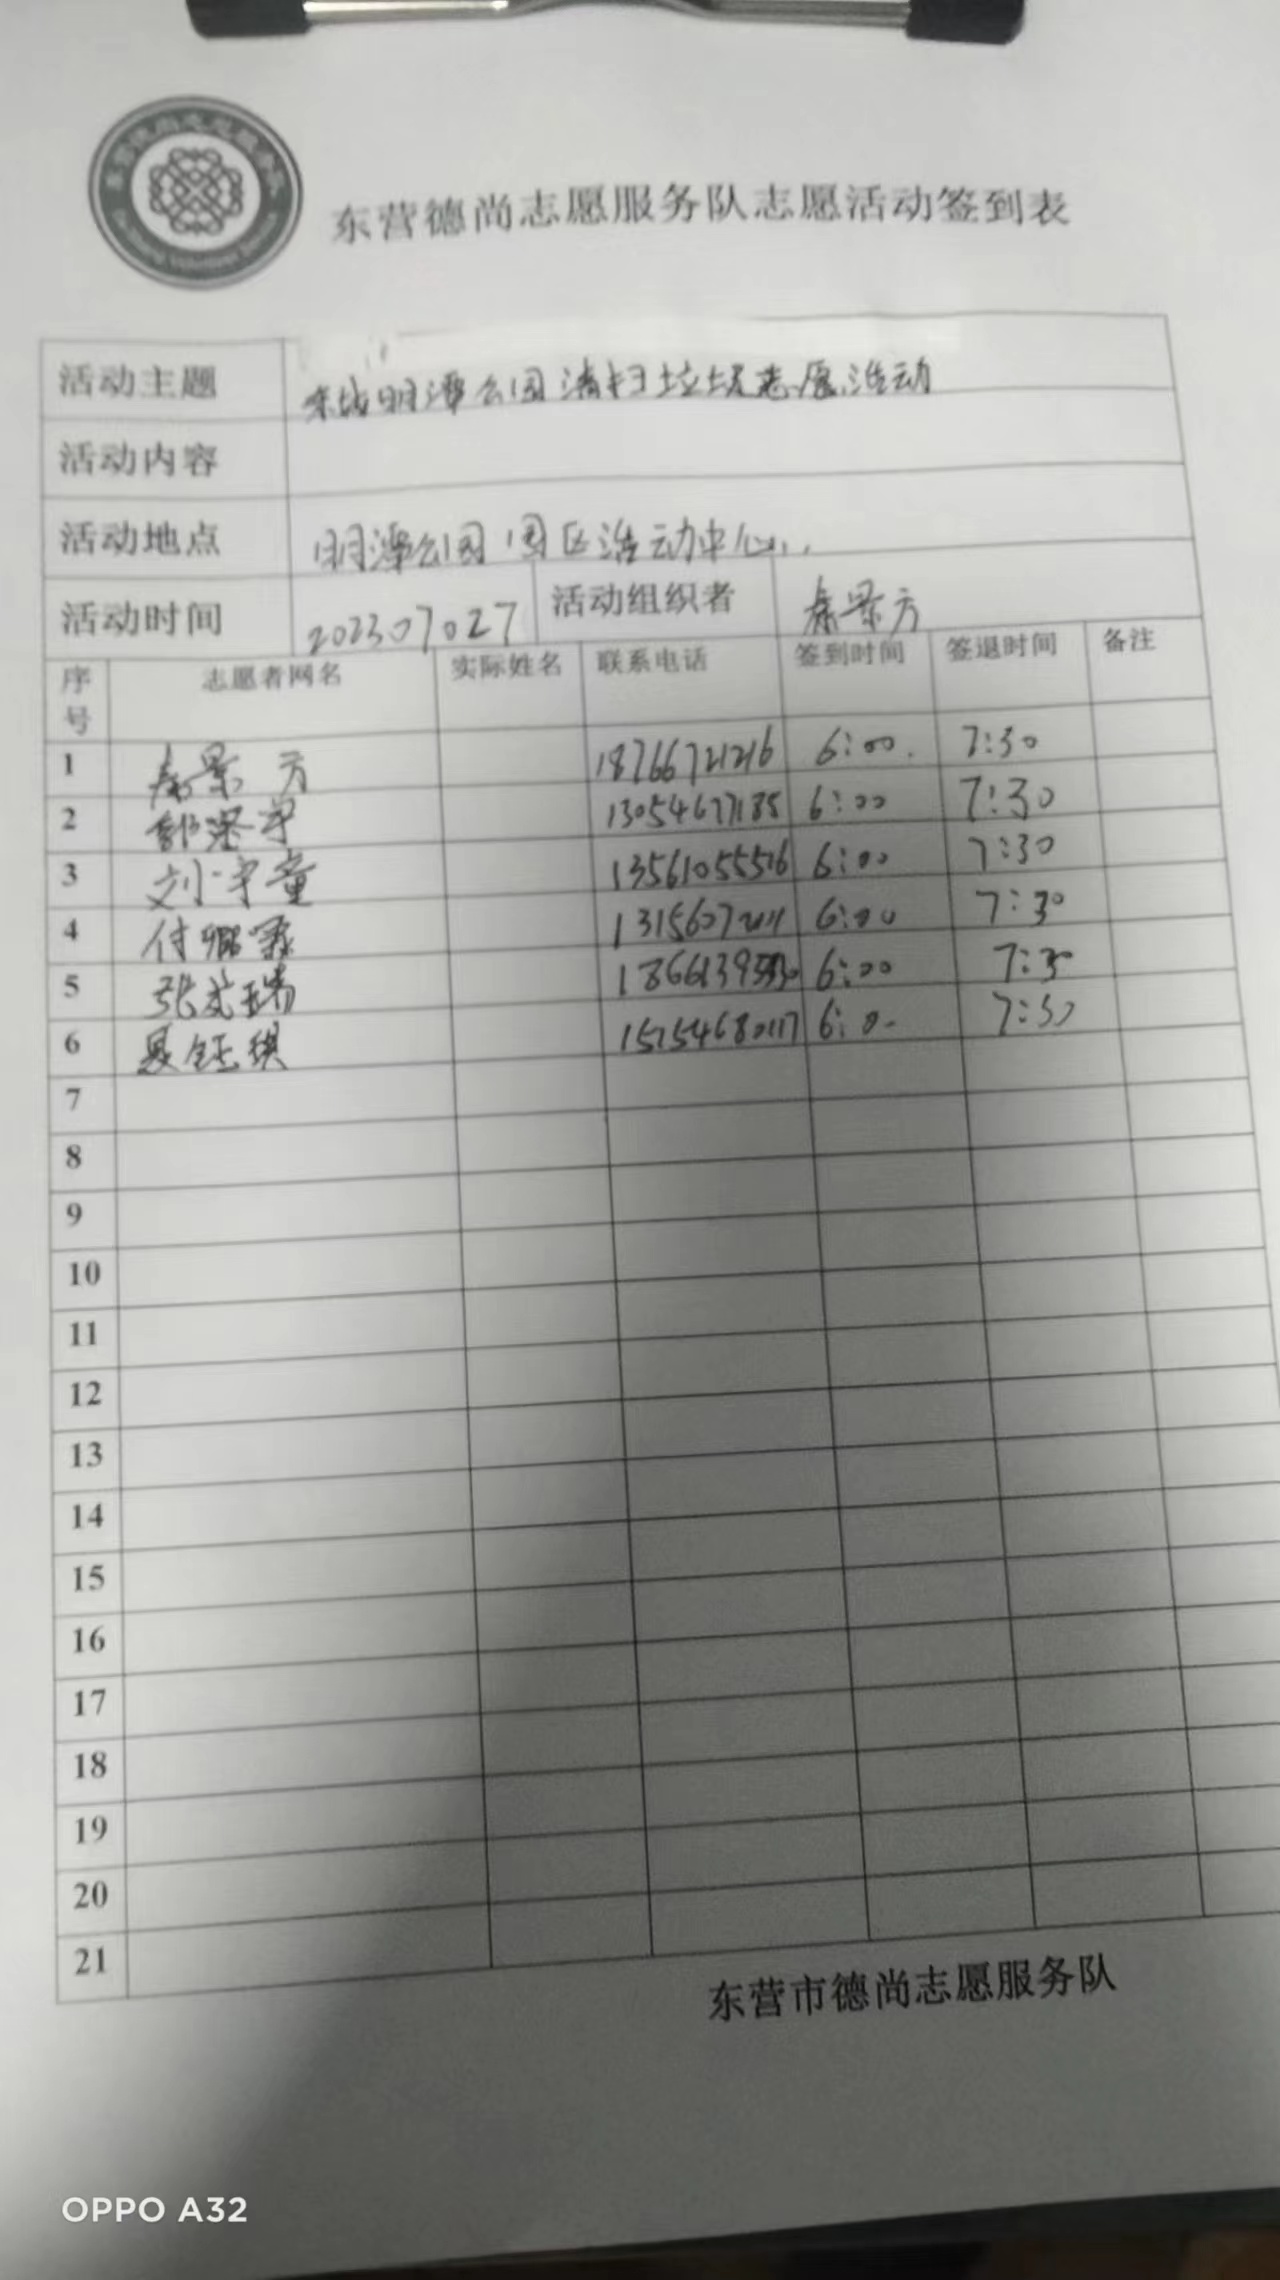 东营德尚志愿服务队志愿活动签到表
活动主题 东城明潭公园清扫垃圾志愿活动
活动内容
活动地点 明潭公园园区活动中心
活动时间 20230727 活动组织者 秦景方
序号 志愿者网名 实际姓名 联系电话 签到时间 签退时间 备注
1 秦景方 18766721216 6:00 7:30
2 13054677185 6:00 7:30
3 刘宇童 6:00 7:30
4 付 6:00 7:30
5 张 瑞 6:00 7:30
6 钰琪 7:30
7
8
9
10
11
12
13
14
15
16
17
18
19
20
21
东营市德尚志愿服务队
OPPO A32